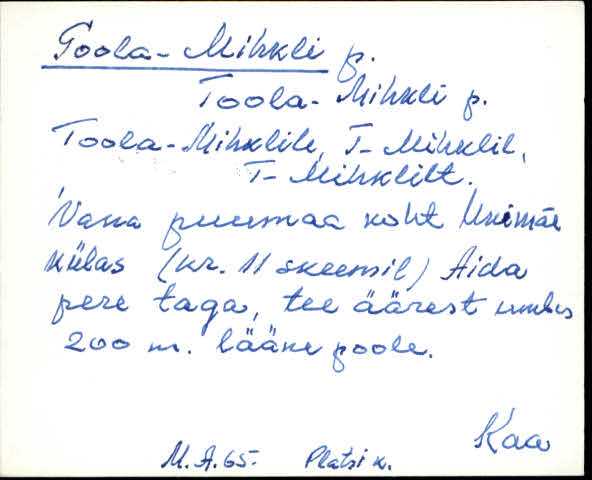 Toola-Mihkli p.
Toola-Mihkli p.
Toola-Mihklile, T-Mihklil,
T-Mihklilt.
Vana puumaa koht Unimäe
külas (kr. 11 skeemil) Aida
pere taga, tee äärest umbes
200 m. lääne poole.
Kaa
M.A.65. Platsi k.